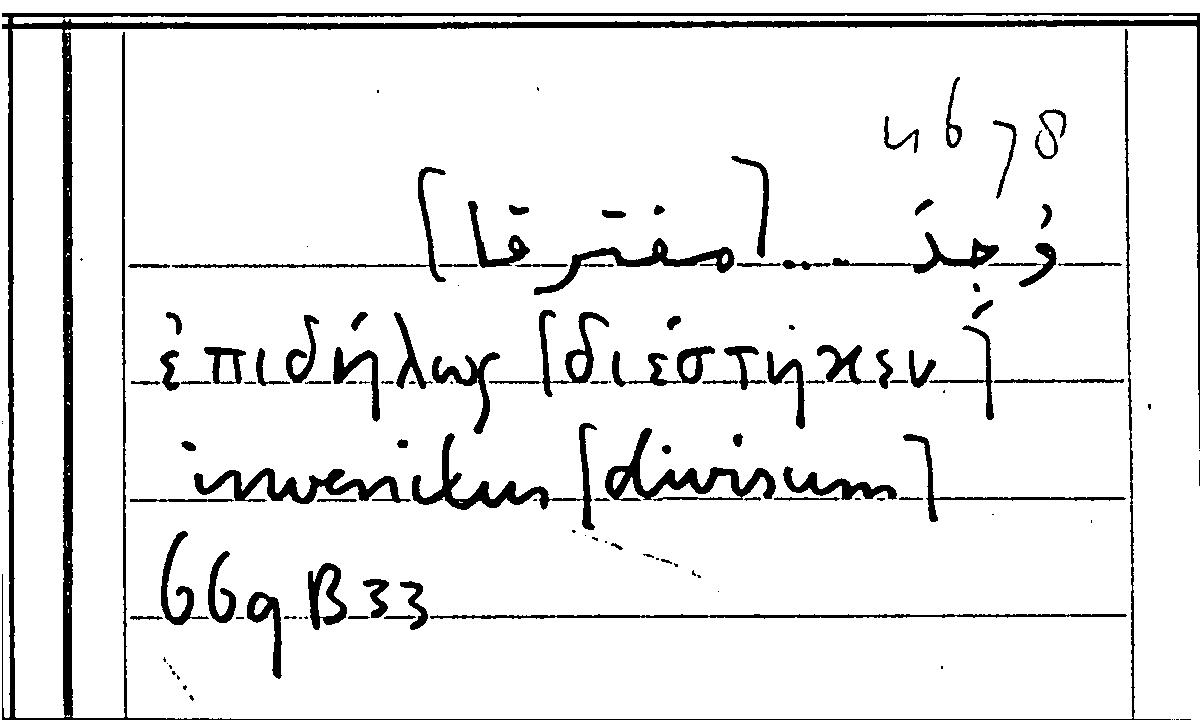 وُجدَ ... [مفترقا]
ἐπιδήλως [διέστηκεν]
invenitur [divisum]
669 B 33